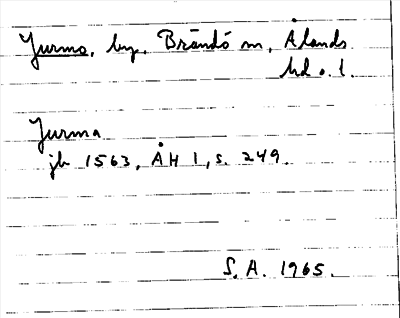 Jurmo, by, Brändö sn, Ålands
hd o. l.
Jurma
jb 1563, ÅH 1, s. 249.
S. A. 1965.